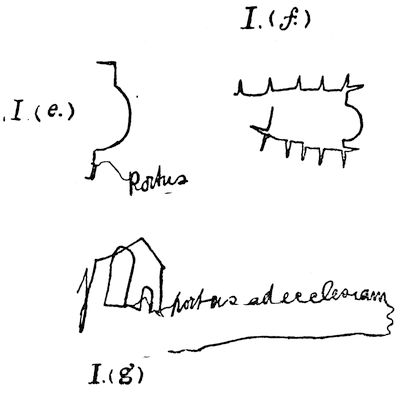 I. (f.)
I. (e.)
Portus
portas ad ecclesiam
I. (g)